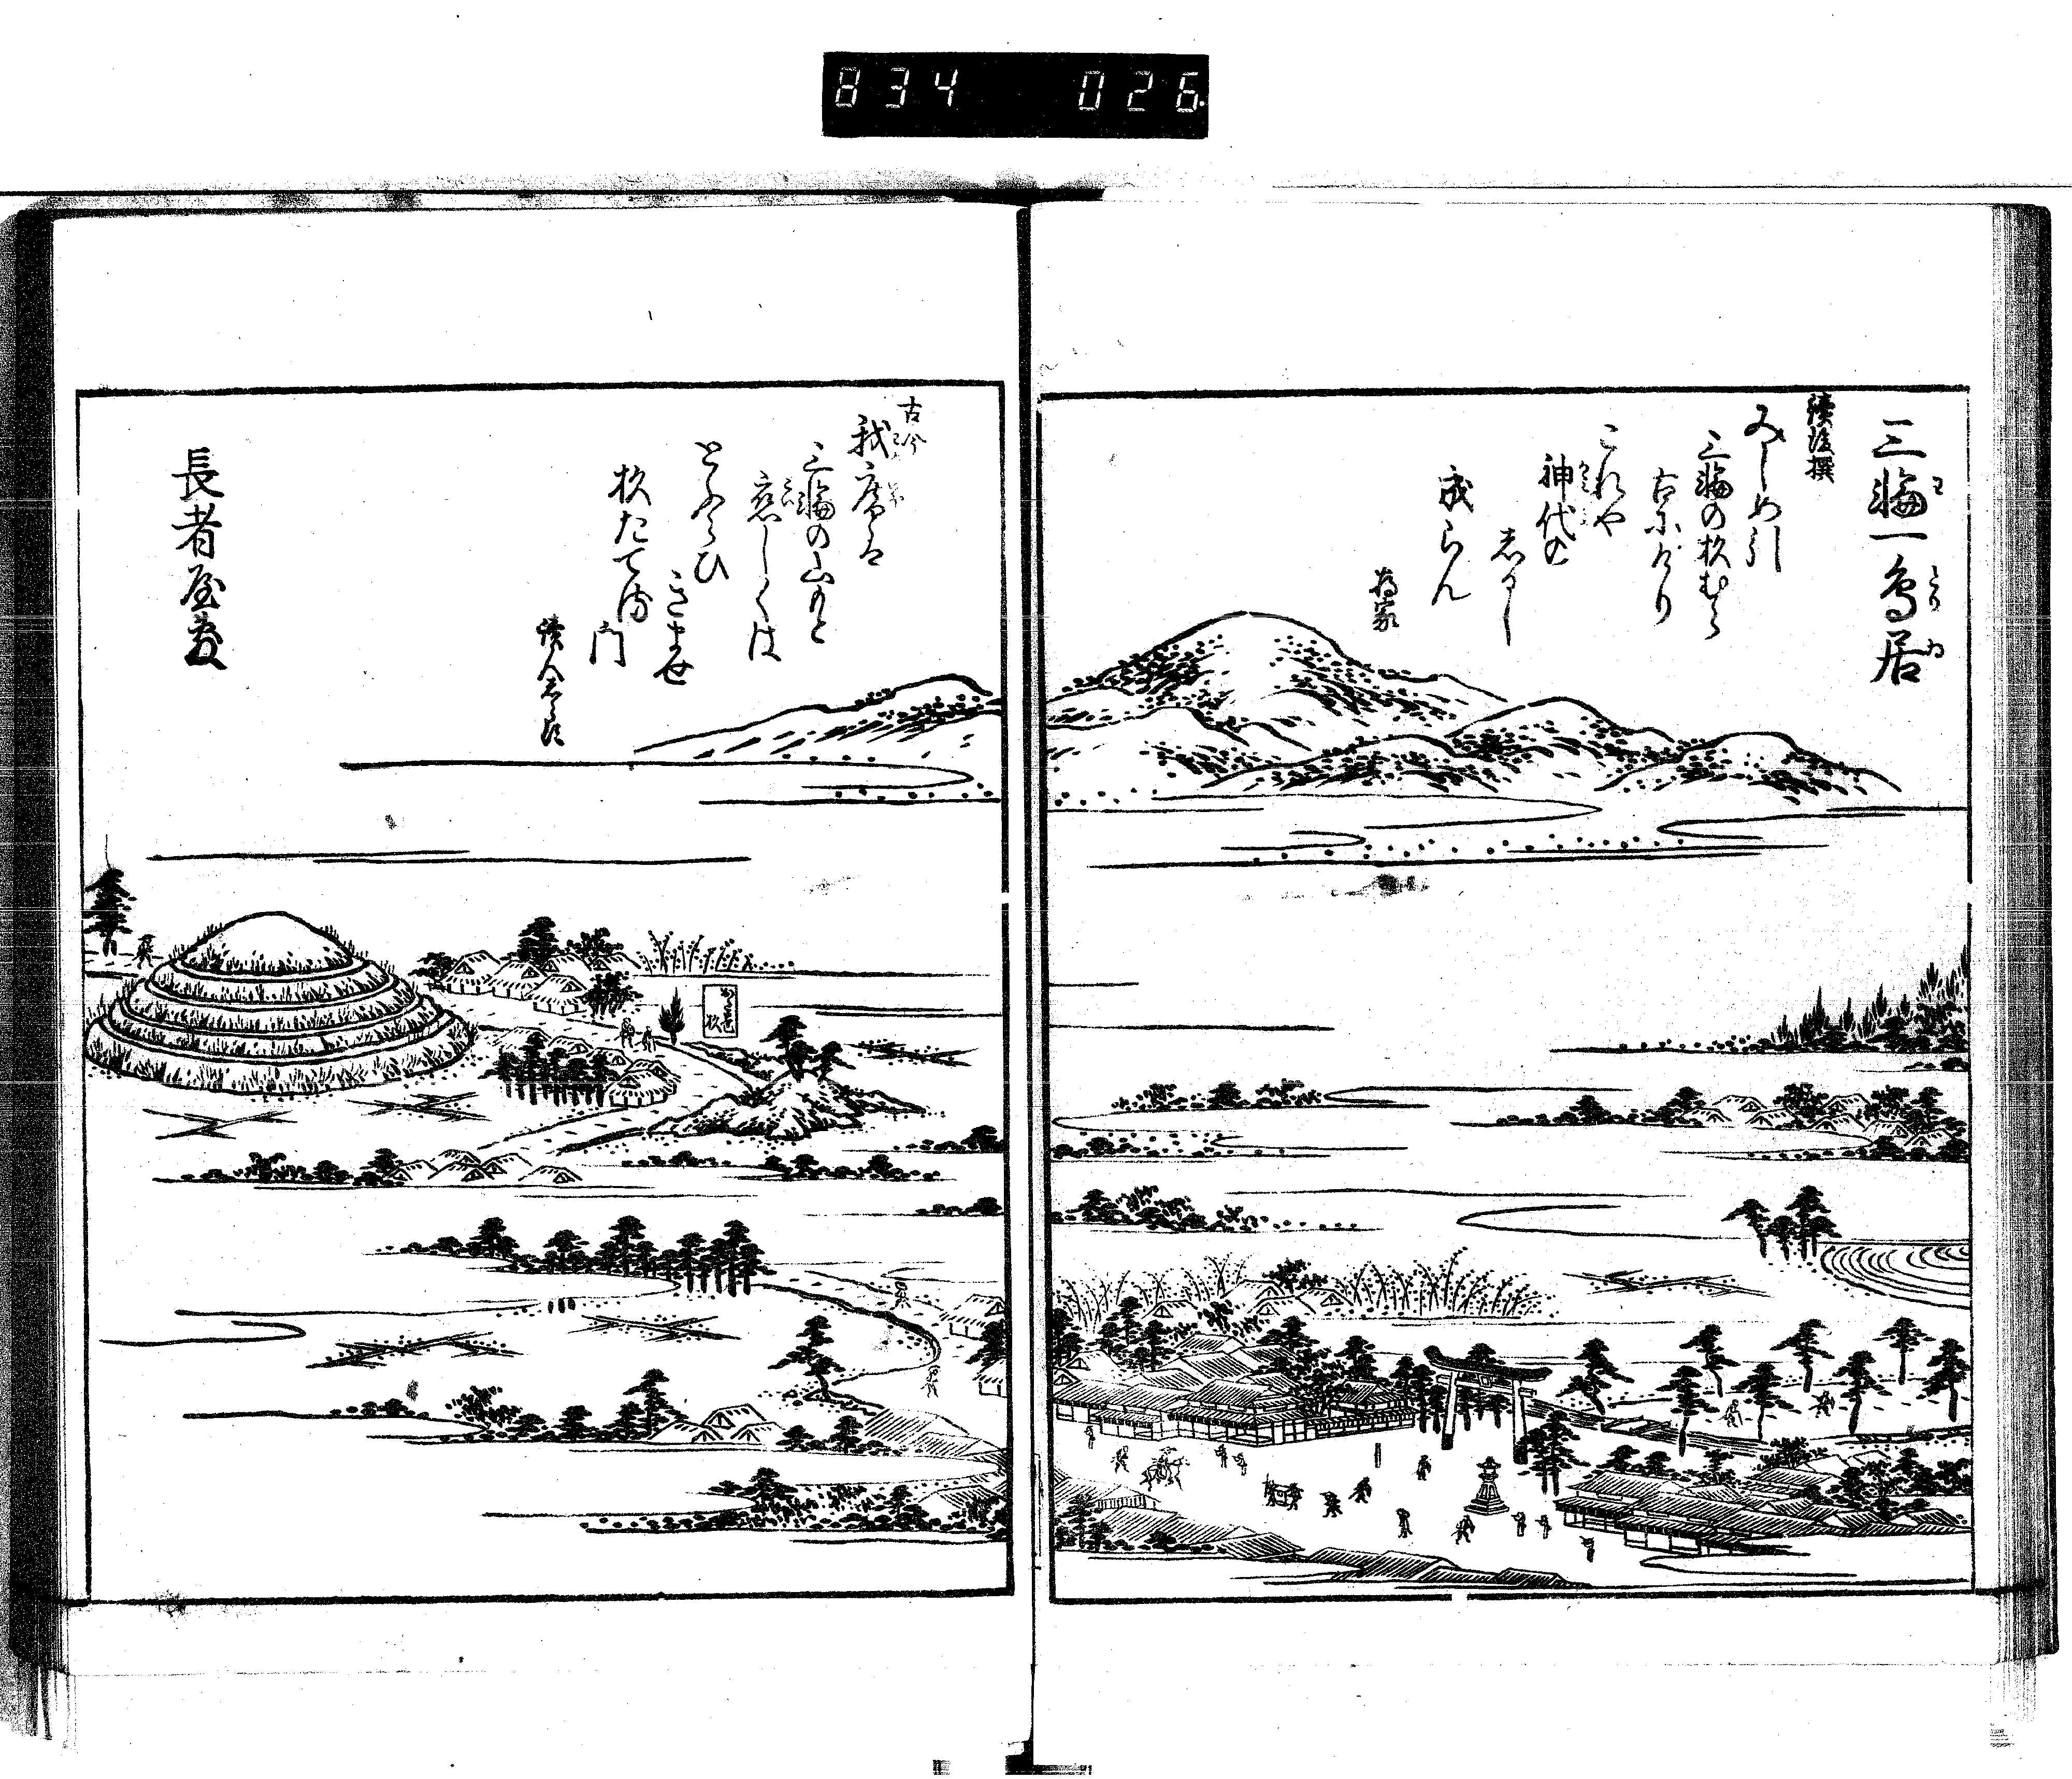 834 026
三輪一鳥居
わ とり ゐ
續後撰
みしめ引
三輪の杦むら
古にけり
これや
神代の
しるし
成らん
為家
古今
我庵は
三輪の山もと
恋しくは
とふらひ
きませ
杦たてる
門
讀人しらず
長者屋敷
しるしの
杦